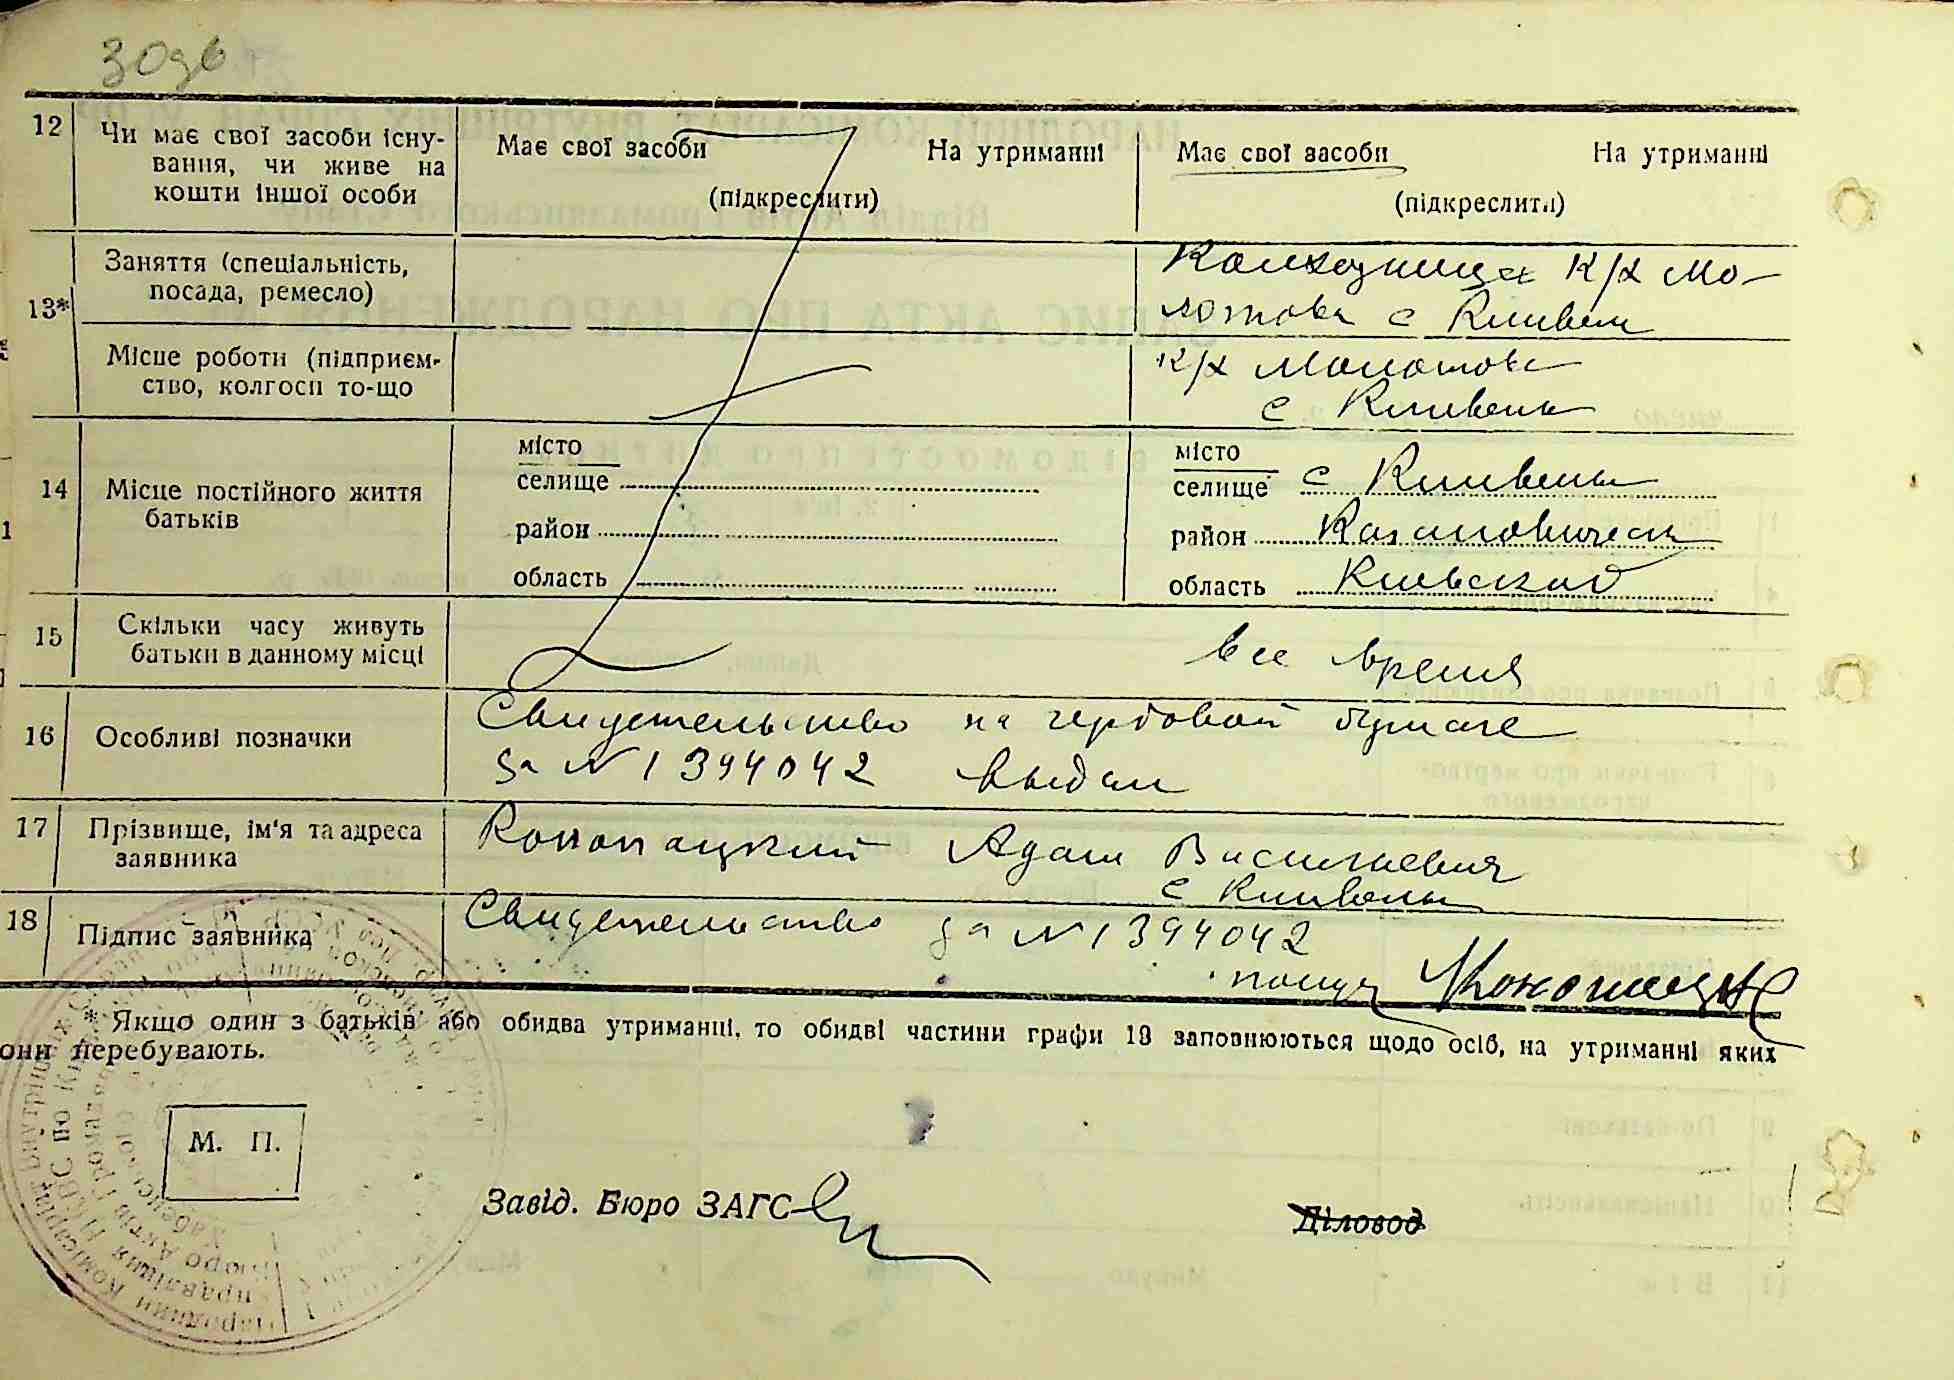 30дб
12 Чи має свої засоби існу-
вання, чи живе на
кошти іншої особи
Має свої засоби На утриманні
(підкреслити)
Має свої засоби На утриманні
(підкреслити)
13* Заняття (спеціальність,
посада, ремесло)
Колхозница к/х Мо-
лотова с Кливень
Місце роботи (підприєм-
ство, колгосп то-що
к/х Молотова
с Кливень
14 Місце постійного життя
батьків
місто
селище
район
область
місто
селище с Кливень
район Кагановичск
область Киевской
15 Скільки часу живуть
батьки в данному місці
все время
16 Особливі позначки
Свидетельство на гербовой бумаге
за N 1394042 выдан
17 Прізвище, ім'я та адреса
заявника
Конопацкий Адам Васильевич
с Кливень
18 Підпис заявника
Свидетельство за N 1394042
* Якщо один з батьків або обидва утриманці, то обидві частини графи 13 заповнюються щодо осіб, на утриманні яких
они перебувають.
М. П.
Завід. Бюро ЗАГС
Діловод